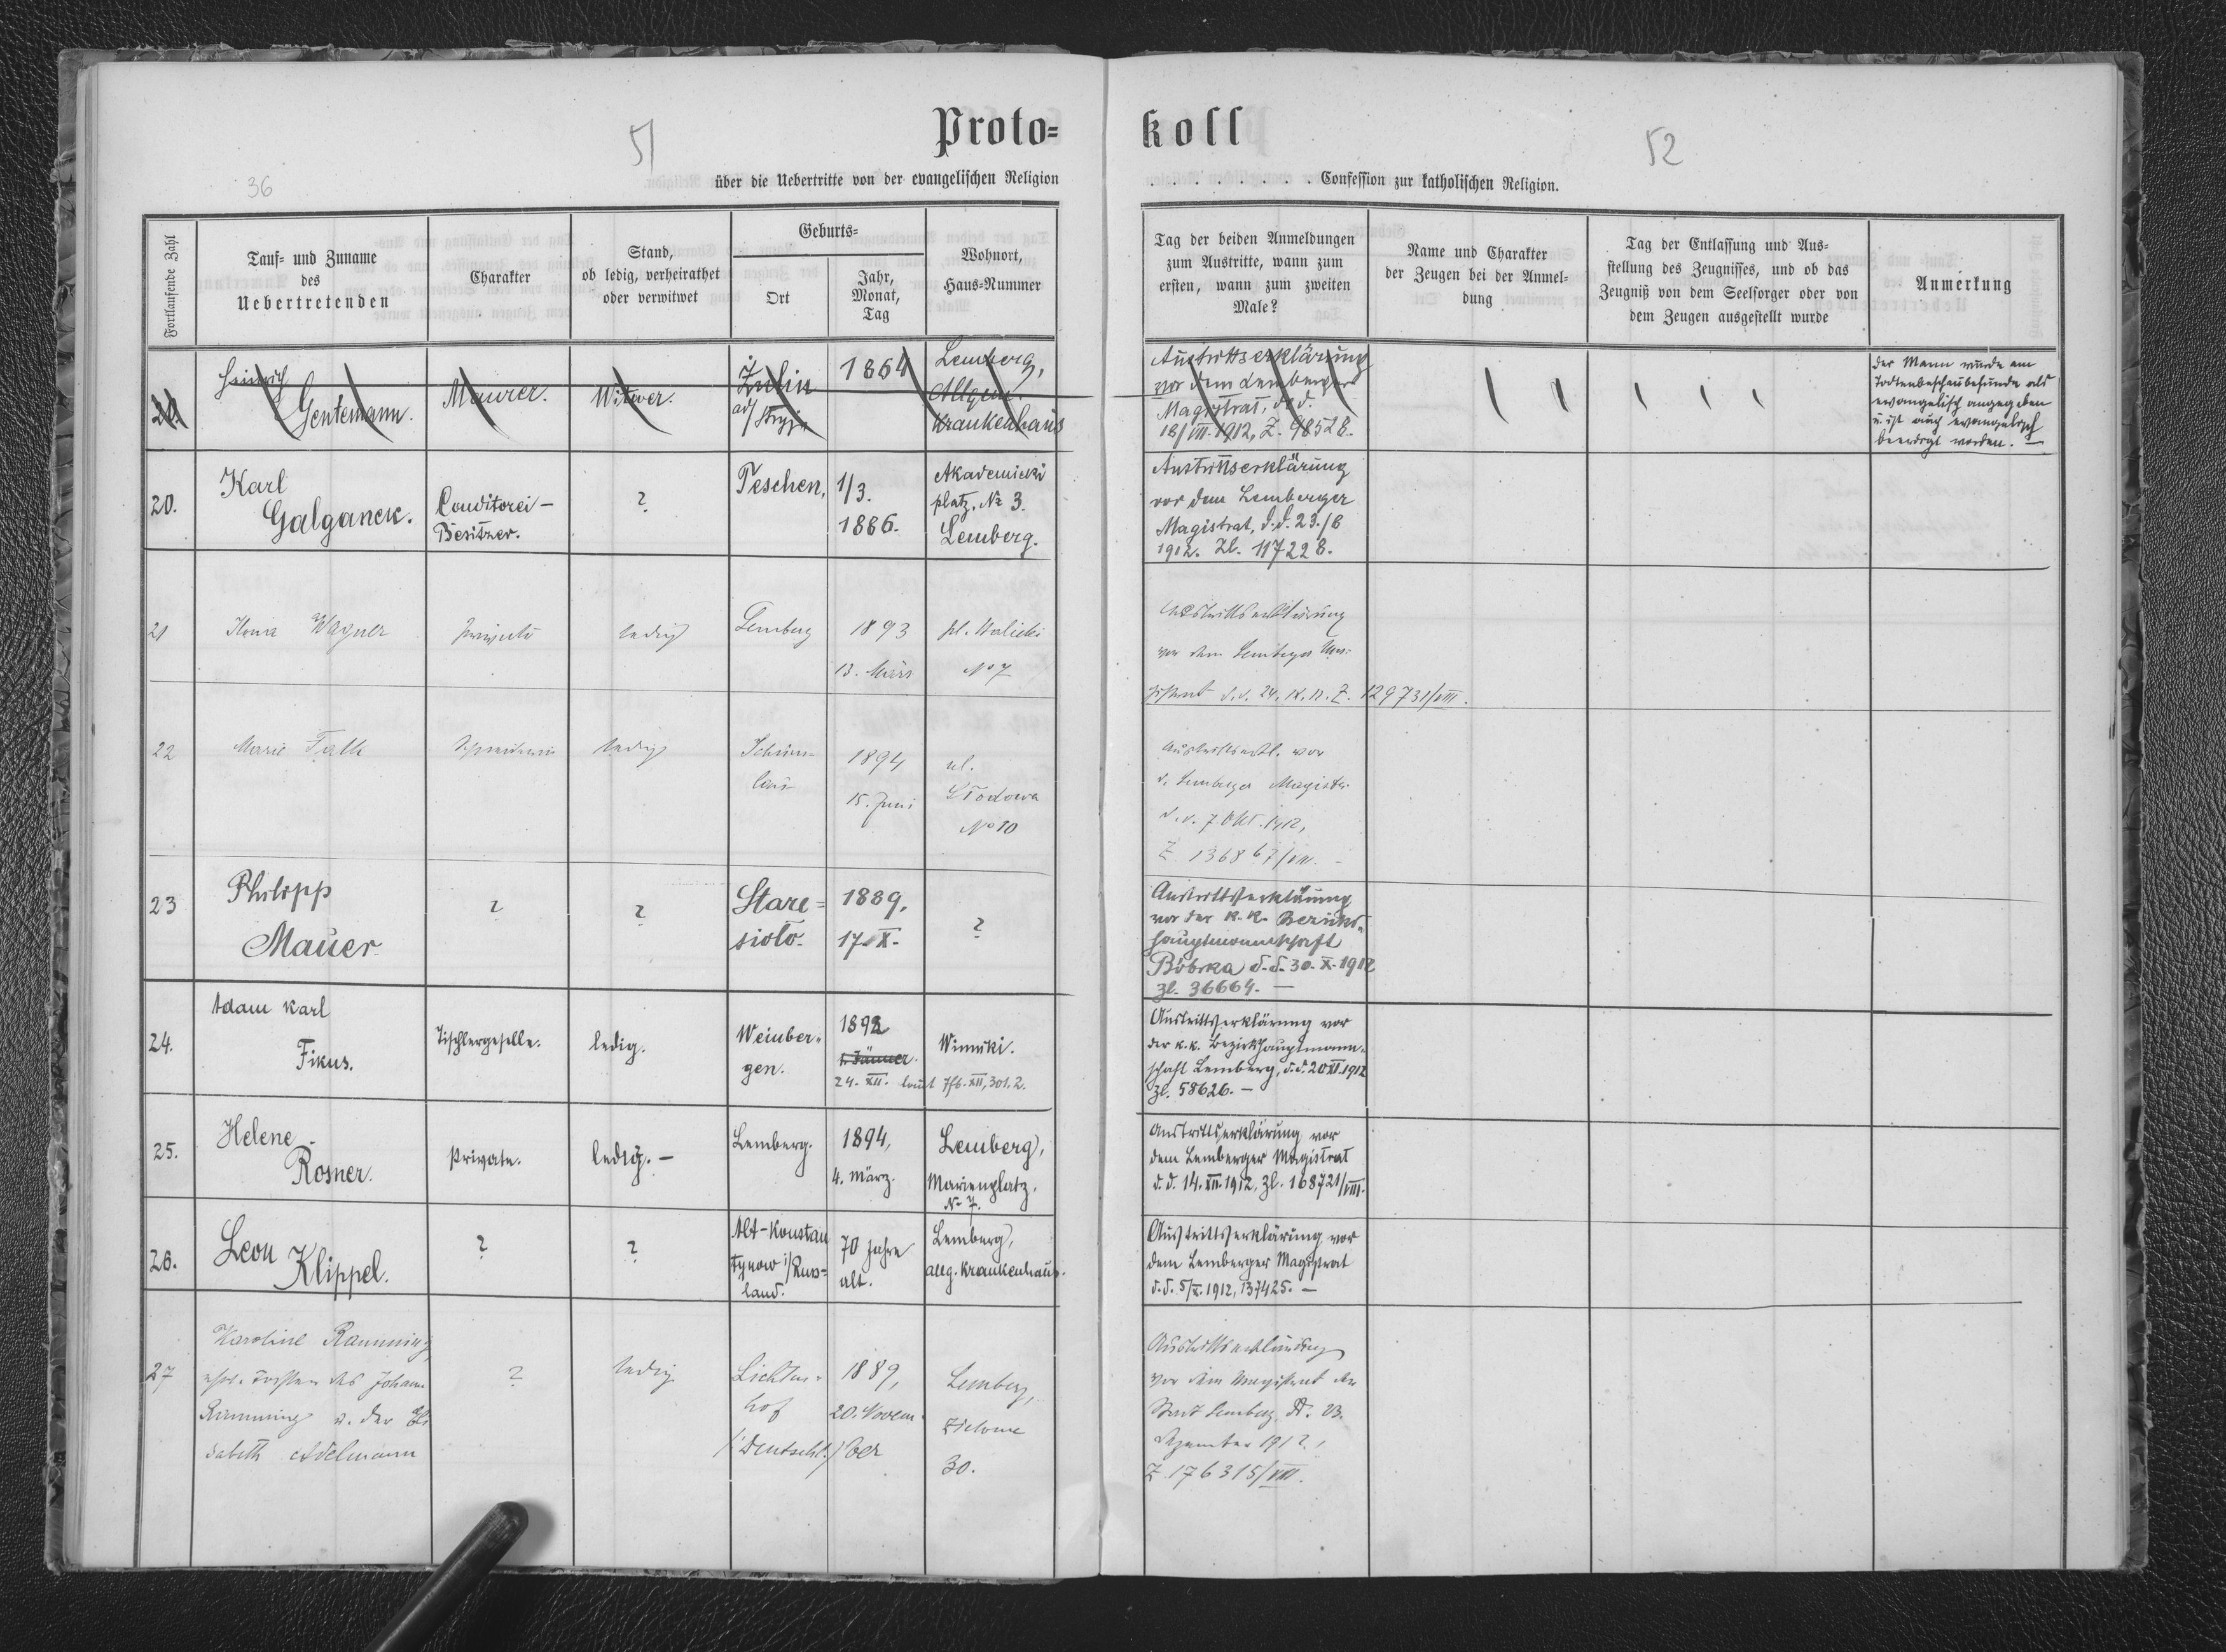 Proto=
koll
51
52
36
über die Uebertritte von der evangelischen Religion
. . . . . . . . Confession zur katholischen Religion.
Fortlaufende Zahl
Tauf= und Zuname
des
Uebertretenden
Charakter
Stand,
ob ledig, verheirathet
oder verwitwet
Geburts=
Ort
Jahr,
Monat,
Tag
Wohnort,
Haus=Nummer
Tag der beiden Anmeldungen
zum Austritte, wann zum
ersten, wann zum zweiten
Male?
Name und Charakter
der Zeugen bei der Anmel-
dung
Tag der Entlassung und Aus=
stellung des Zeugnisses, und ob das
Zeugniß von dem Seelsorger oder von
dem Zeugen ausgestellt wurde
Anmerkung
20.
Heinrich
Gentemann.
Maurer.
Witwer.
Zulin
ad/ Stryj
1864
Lemberg,
Allgem.
Krankenhaus
Austrittserklärung
vor dem Lemberger
Magistrat, d. d.
18/VII. 1912, Z. 98528.
Der Mann wurde am
Todtenbeschaubefunde als
evangelisch angegeben
u. ist auch evangelisch
beerdigt worden. —
20.
Karl
Galganek.
Conditorei -
Besitzer.
?
Teschen,
1/3.
1886.
Akademicki
platz, № 3.
Lemberg.
Austrittserklärung
vor dem Lemberger
Magistrat, d. d. 23./8
1912. Zl. 117228.
21
Wagner
Private
ledig
Lemberg
1893
13. März
pl. Halicki
No 7
Austrittserklärung
vor dem Lemberger Ma-
gistrat d. d. 24. IX. 12. Z. 129731/VIII.
22
Marie Falk
ledig
1894
15. Juni
ul.
No 10
Austrittserkl. vor
d. Lemberger Magistr.
d. d. 7. Okt. 1912,
Z 136867/VIII. -
23
Philipp
Mauer.
?
?
Stare=
sioło.
1889.
17. X.
?
Austrittserklärung
vor der k. k. Bezirks-
hauptmannschaft
Bóbrka d. d. 30. X. 1912
Zl. 36664. —
24.
Adam Karl
Fikus.
Tischlergeselle.
ledig.
Weinber-
gen.
1892
1. Jänner.
24. XII. laut Tfb. XII, 301, 2.
Winniki.
Austrittserklärung vor
der k. k. Bezirkshauptmann-
schaft Lemberg, d. d. 20 XI. 1912
Zl. 58626. —
25.
Helene
Rosner.
Private.
ledig. —
Lemberg.
1894,
4. März.
Lemberg,
Marienplatz,
N- 7.
Austrittserklärung vor
dem Lemberger Magistrat
d. d. 14. XII. 1912, Zl. 168721/VIII.
26.
Leon
Klippel.
?
?
Alt-Konstan
tynow i/Russ=
land.
70 Jahre
alt.
Lemberg,
allg. Krankenhaus.
Austrittserklärung vor
dem Lemberger Magistrat
d. d. 5/X. 1912, 137425. —
27
Karoline Ramming,
ehel. Tochter des Johann
Ramming u. der Eli
sabeth Adelmann
?
ledig
Lichten-
hof
/Deutschl./
1889,
20. Novem-
ber
Lemberg,
Zielona
30.
Austrittserklärung
vor dem Magistrat der
Stadt Lemberg, dt. 23.
Dezember 1912,
Z. 176315/VIII.